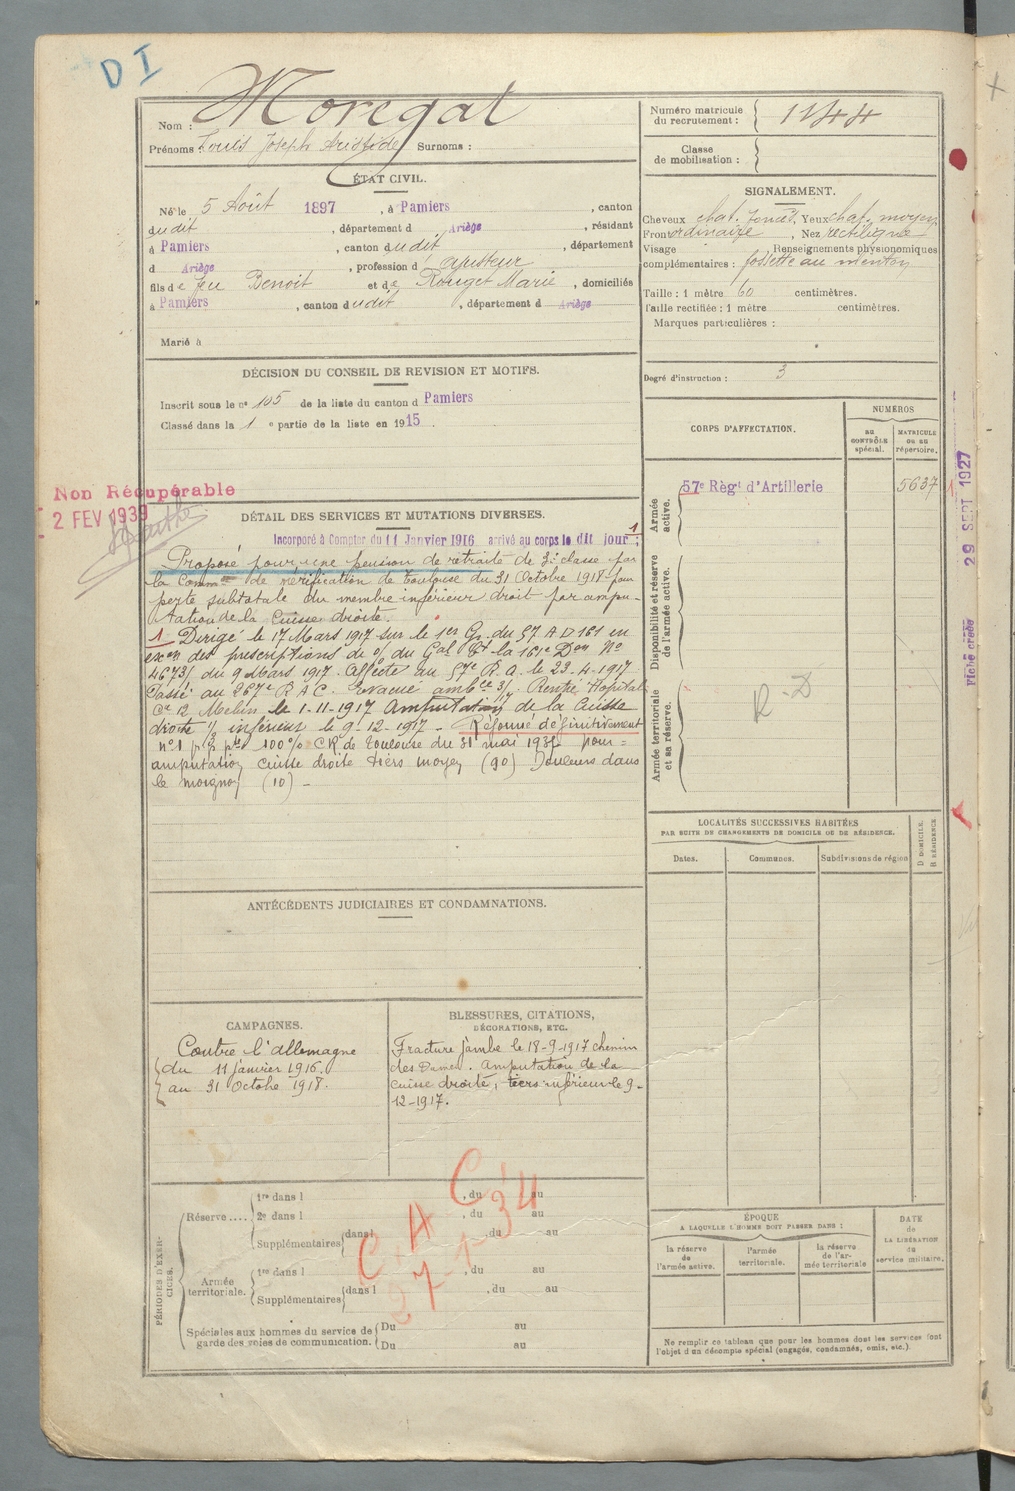 D I
Nom : Moregat
Prénoms : Louis Joseph Aristide Surnoms :
Numéro matricule
du recrutement : 1144
Classe
de mobilisation :
ÉTAT CIVIL.
Né le 5 Août 1897, à Pamiers, canton
dudit, département d Ariège, résidant
à Pamiers, canton dudit, département
d Ariège, profession d'ajusteur
fils de feu Benoit et de Rouget Marie, domiciliés
à Pamiers, canton dudit, département d Ariège
Marié à
SIGNALEMENT.
Cheveux chat. foncé. Yeux chat. moyen
Front ordinaire, Nez rectiligne
Visage , Renseignements physionomiques
complémentaires : fossette au menton
Taille : 1 mètre 60 centimètres.
Taille rectifiée : 1 mètre centimètres.
Marques particulières :
Degré d'instruction : 3
DÉCISION DU CONSEIL DE REVISION ET MOTIFS.
Inscrit sous le n° 105 de la liste du canton d Pamiers
Classé dans la 1 e partie de la liste en 1915.
Non Récupérable
2 FEV 1939
CORPS D'AFFECTATION.
NUMÉROS
au
CONTRÔLE
spécial.
MATRICULE
ou au
répertoire.
Armée
active.
57e Règt d'Artillerie
5637
1
Disponibilité et réserve
de l'armée active.
Armée territoriale
et sa réserve.
R-D
29 SEPT 1927
Fiche créée
DÉTAIL DES SERVICES ET MUTATIONS DIVERSES.
Incorporé à Compter du 11 Janvier 1916 arrivé au corps le dit jour ; 1
Proposé pour une pension de retraite de 3e classe par
la Comm on de vérification de Toulouse du 31 Octobre 1918 pour
perte subtotale du membre inférieur droit par ampu-
tation de la Cuisse droite.
1 Dirigé le 17 Mars 1917 sur le 1er Gr. du 57 A D 161 en
exon des prescriptions de o/ du Gal Ct la 161e Don No
4673/ du 9 Mars 1917. Affecté au 57e R.A. le 23-4-1917
Passé au 267e R A C. Evacué ambce 3/ Rentré Hopital
Ce 12 Melun le 1-11-1917 Amputation de la Cuisse
droite 1/3 inférieur le 9-12-1917 - Réformé définitivement
n° 1 100% CR de Toulouse du 31 mai 1932 pour =
amputation cuisse droite tiers moyen (90) Douleurs dans
le moignon (10) -
LOCALITÉS SUCCESSIVES HABITÉES
PAR SUITE DE CHANGEMENTS DE DOMICILE OU DE RÉSIDENCE.
D DOMICILE.
R RÉSIDENCE
Dates.
Communes.
Subdivisions de région
ANTÉCÉDENTS JUDICIAIRES ET CONDAMNATIONS.
CAMPAGNES.
Contre l'allemagne
du 11 janvier 1916.
au 31 Octobe 1918.
BLESSURES, CITATIONS,
DÉCORATIONS, ETC.
Fracture jambe le 18-9-1917 chemin
des Dames. Amputation de la
cuisse droite, tiers inférieur le 9-
12-1917.
PÉRIODES D'EXER-
CICES.
Réserve....
1re dans l , du au
2e dans l , du au
Supplémentaires dans l , du au
Armée
territoriale.
1re dans l , du au
Supplémentaires dans l , du au
Spéciales aux hommes du service de
garde des voies de communication.
Du au
Du au
ÉPOQUE
A LAQUELLE L'HOMME DOIT PASSER DANS :
la réserve
de
l'armée active.
l'armée
territoriale.
la réserve
de l'ar-
mée territoriale
DATE
de
LA LIBÉRATION
du
service militaire.
Ne remplir ce tableau que pour les hommes dont les services font
l'objet d'un décompte spécial (engagés, condamnés, omis, etc.).